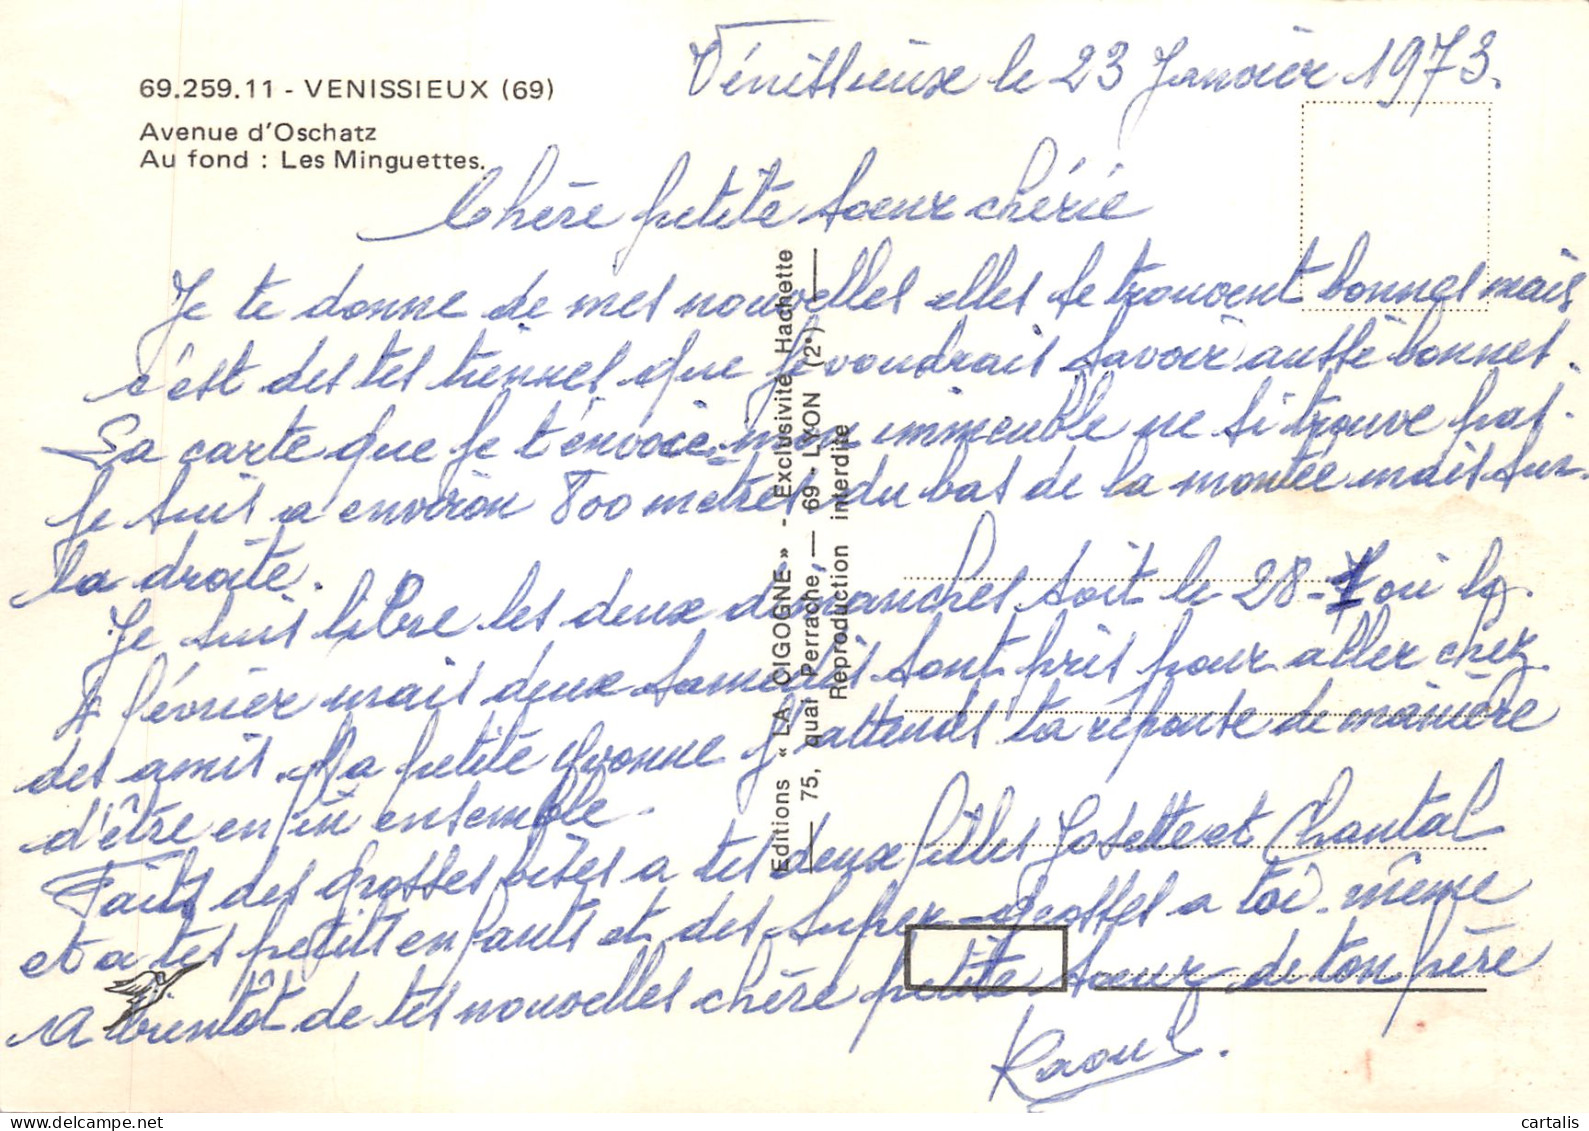 69.259.11 - VENISSIEUX (69)
Avenue d'Oschatz
Au fond : Les Minguettes.
Vénissieux le 23 Janvier 1973.
Chère petite soeur chérie
Je te donne de mes nouvelles elles se trouvent bonnes mais
c'est des tes tiennes que je voudrais savoir aussé bonnes.
Sa carte que je t'envoie mon immeuble ne si trouve pas.
Je suis a environ 800 metres du bas de la montée mais sur
la droite.
Je suis libre les deux dimanches soit le 28-1 ou le
4 février mais deux samedis sont pris pour aller chez
des amis. Ma petite Yvonne j'attends ta réponse de manière
d'être enfin ensemble.
Faits des grosses bises a tes deux filles Josette et Chantal
et a tes petits enfants et des super-grosses a toi. même
A bientôt de tes nouvelles chère petite soeur de ton frère
Raoul.
Editions « LA CIGOGNE » - Exclusivité Hachette
— 75, quai Perrache, — 69 - LYON (2e) —
Reproduction interdite
cartalis